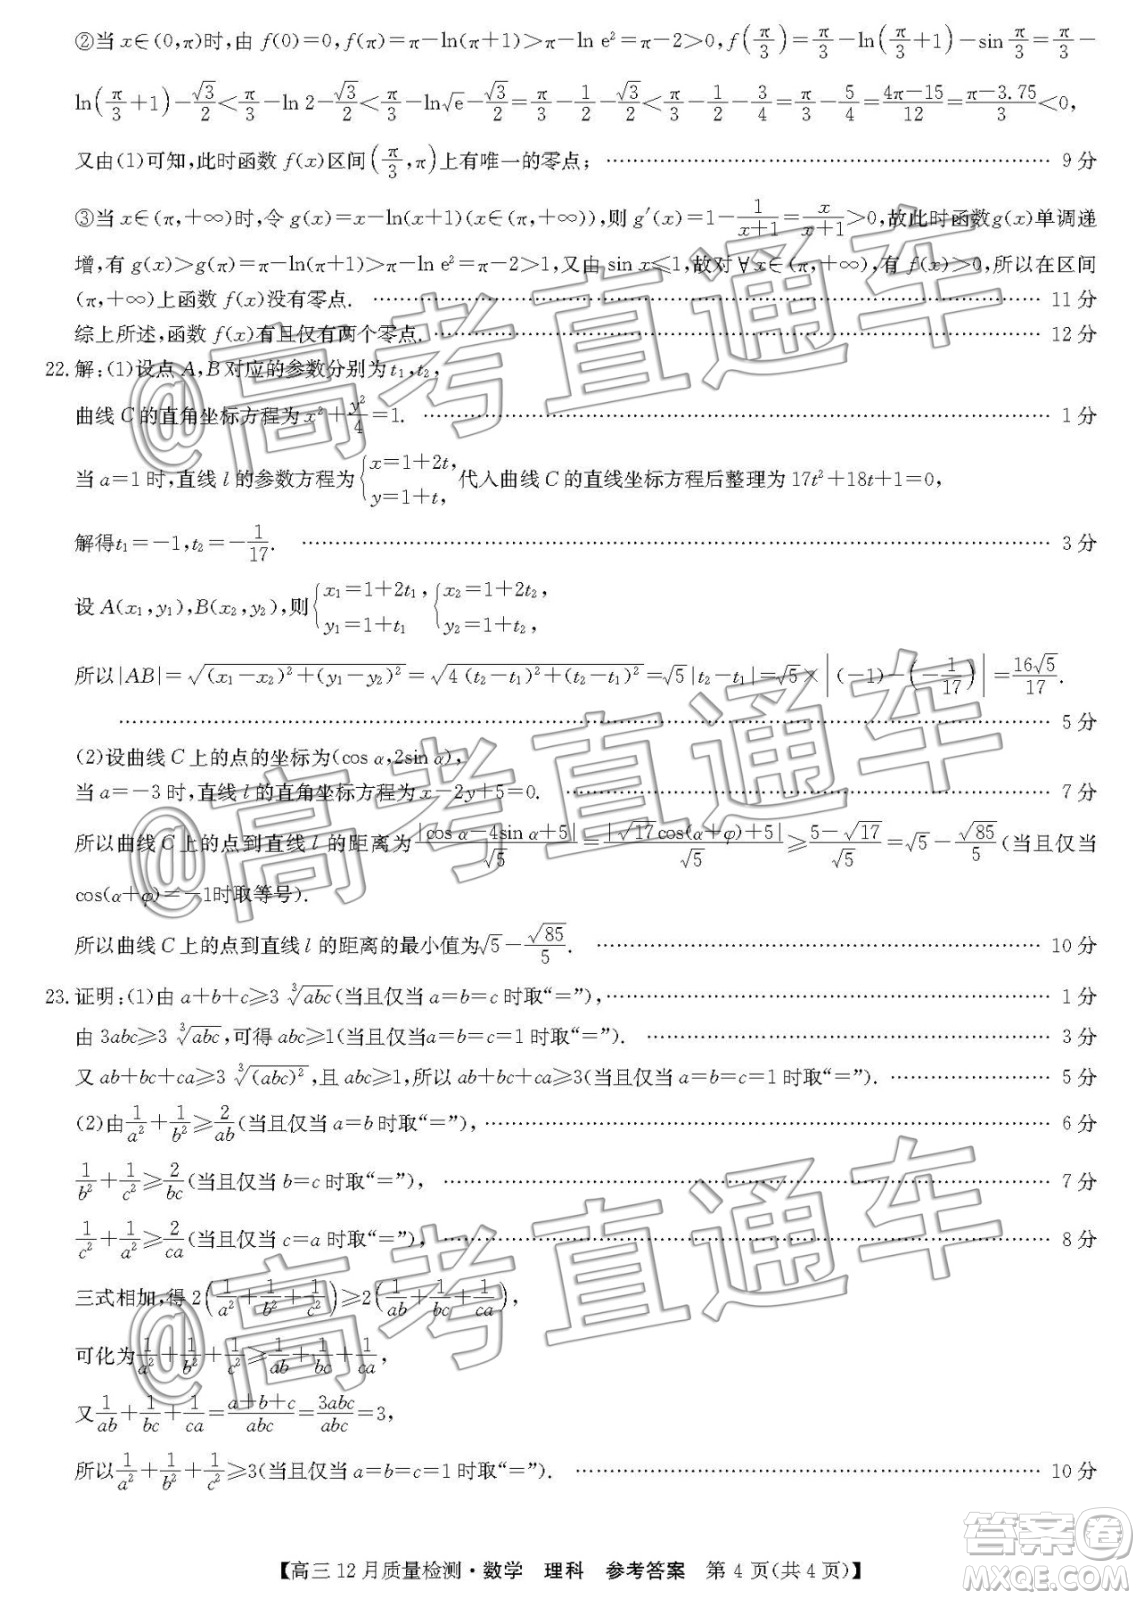 ②当 x∈(0,π)时,由 f(0)=0,f(π)=π−ln(π+1)>π−ln e²=π−2>0,f(π/3)=π/3−ln(π/3+1)−sin π/3=π/3−
ln(π/3+1)−√3/2<π/3−ln 2−√3/2<π/3−ln√e−√3/2=π/3−1/2−√3/2<π/3−1/2−3/4=π/3−5/4=(4π−15)/12=(π−3.75)/3<0,
又由(1)可知,此时函数 f(x)区间(π/3,π)上有唯一的零点; …… 9 分
③当 x∈(π,+∞)时,令 g(x)=x−ln(x+1)(x∈(π,+∞)),则 g′(x)=1−1/(x+1)=x/(x+1)>0,故此时函数g(x)单调递
增,有 g(x)>g(π)=π−ln(π+1)>π−ln e²=π−2>1,又由 sin x≤1,故对∀x∈(π,+∞),有 f(x)>0,所以在区间
(π,+∞)上函数 f(x)没有零点. …… 11 分
综上所述,函数 f(x)有且仅有两个零点. …… 12 分
22. 解:(1)设点 A,B对应的参数分别为 t₁,t₂,
曲线 C 的直角坐标方程为 x²+y²/4=1. …… 1 分
当 a=1 时,直线 l 的参数方程为{x=1+2t, y=1+t, 代入曲线 C 的直线坐标方程后整理为 17t²+18t+1=0,
解得t₁=−1,t₂=−1/17. …… 3 分
设 A(x₁,y₁),B(x₂,y₂),则{x₁=1+2t₁, y₁=1+t₁ {x₂=1+2t₂, y₂=1+t₂,
所以|AB|=√((x₁−x₂)²+(y₁−y₂)²)=√(4(t₂−t₁)²+(t₂−t₁)²)=√5|t₂−t₁|=√5×|(−1)−(−1/17)|=16√5/17.
…… 5 分
(2)设曲线 C 上的点的坐标为(cos α,2sin α),
当 a=−3 时,直线 l 的直角坐标方程为 x−2y+5=0. …… 7 分
所以曲线 C 上的点到直线 l 的距离为|cos α−4sin α+5|/√5=|√17cos(α+φ)+5|/√5≥(5−√17)/√5=√5−√85/5(当且仅当
cos(α+φ)=−1时取等号).
所以曲线 C 上的点到直线 l 的距离的最小值为√5−√85/5. …… 10 分
23. 证明:(1)由 a+b+c≥3∛abc(当且仅当 a=b=c 时取“=”), …… 1 分
由 3abc≥3∛abc,可得 abc≥1(当且仅当a=b=c=1 时取“=”). …… 3 分
又 ab+bc+ca≥3∛(abc)²,且 abc≥1,所以 ab+bc+ca≥3(当且仅当 a=b=c=1 时取“=”). …… 5 分
(2)由1/a²+1/b²≥2/ab(当且仅当 a=b 时取“=”), …… 6 分
1/b²+1/c²≥2/bc(当且仅当 b=c 时取“=”), …… 7 分
1/c²+1/a²≥2/ca(当且仅当 c=a 时取“=”), …… 8 分
三式相加,得 2(1/a²+1/b²+1/c²)≥2(1/ab+1/bc+1/ca),
可化为1/a²+1/b²+1/c²≥1/ab+1/bc+1/ca,
又1/ab+1/bc+1/ca=(a+b+c)/abc=3abc/abc=3,
所以1/a²+1/b²+1/c²≥3(当且仅当 a=b=c=1 时取“=”). …… 10 分
【高三12月质量检测·数学 理科 参考答案 第4页(共4页)】
@高考直通车
@高考直通车
@高考直通车
答案圈
MXQE.COM